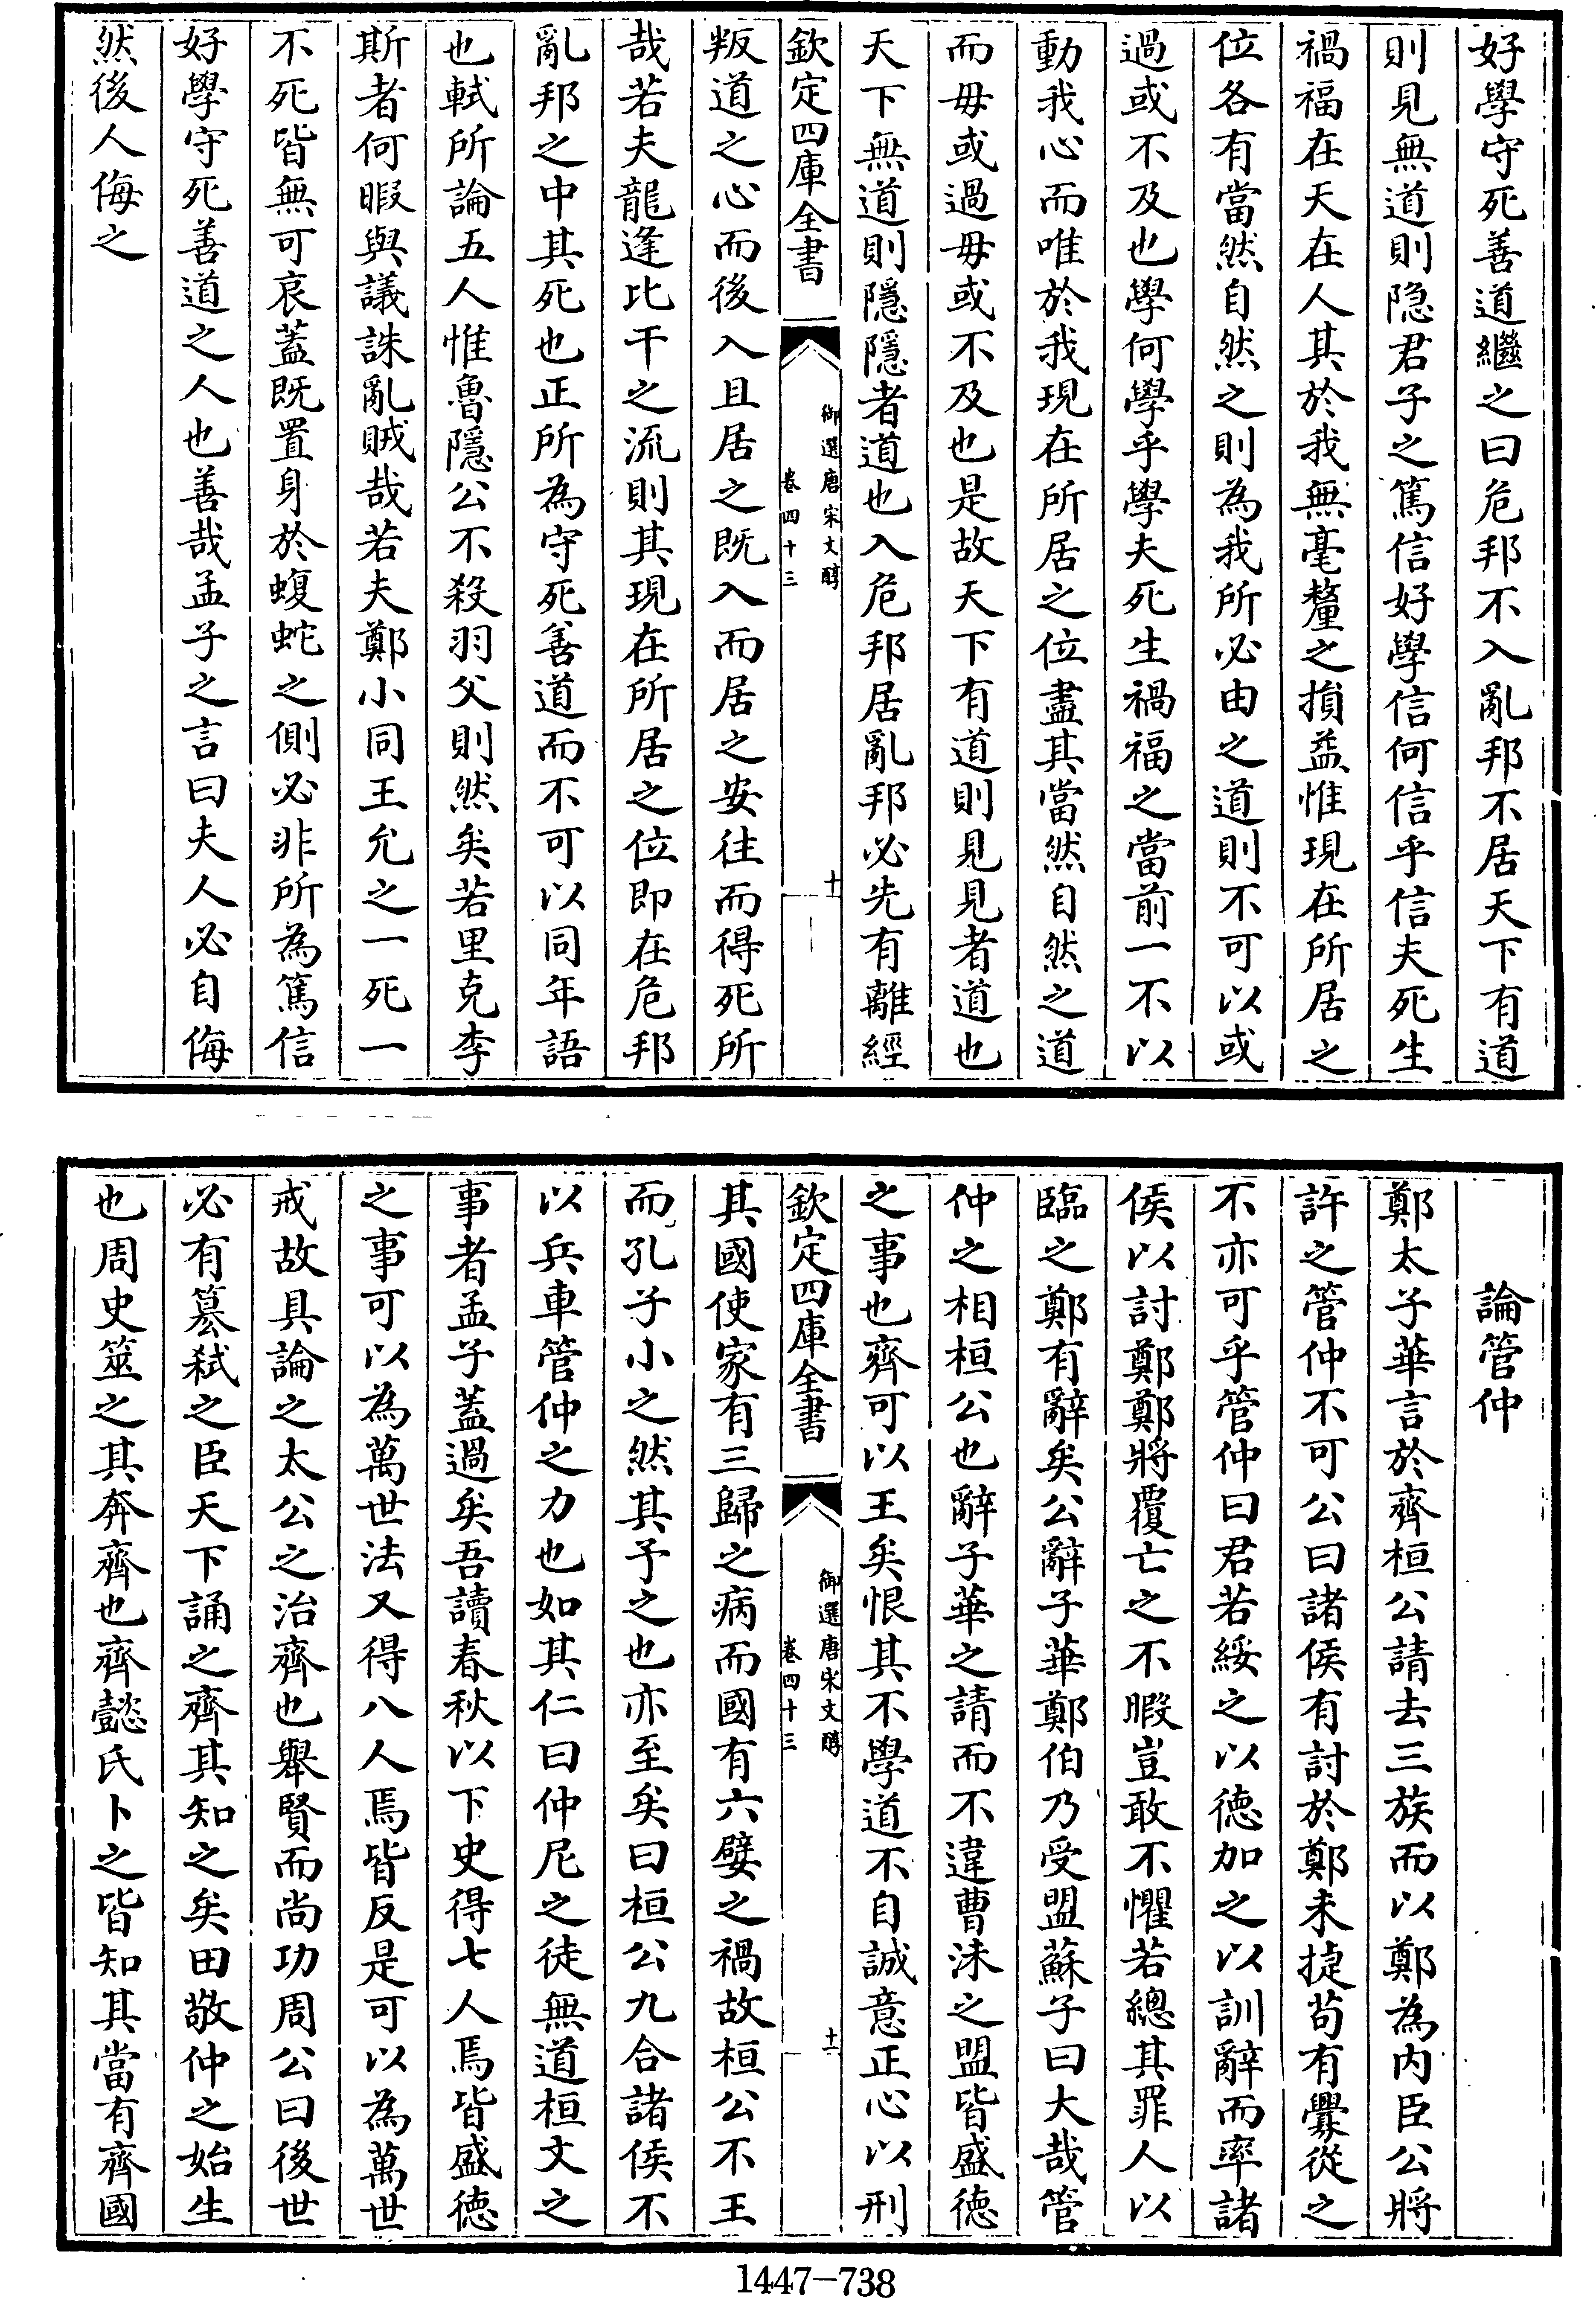 好學守死善道繼之曰危邦不入亂邦不居天下有道
則見無道則隐君子之篤信好學信何信乎信夫死生
禍福在天在人其於我無毫釐之損益惟現在所居之
位各有當然自然之則為我所必由之道則不可以或
過或不及也學何學乎學夫死生禍福之當前一不以
動我心而唯於我現在所居之位盡其當然自然之道
而毋或過毋或不及也是故天下有道則見見者道也
天下無道則隱隱者道也入危邦居亂邦必先有離經
欽定四庫全書
御選唐宋文醇
卷四十三
十
叛道之心而後入且居之既入而居之安往而得死所
哉若夫龍逢比干之流則其現在所居之位即在危邦
亂邦之中其死也正所為守死善道而不可以同年語
也軾所論五人惟魯隱公不殺羽父則然矣若里克李
斯者何暇與議誅亂賊哉若夫鄭小同王允之一死一
不死皆無可哀蓋既置身於蝮蛇之側必非所為篤信
好學守死善道之人也善哉孟子之言曰夫人必自侮
然後人侮之
論管仲
鄭太子華言於齊桓公請去三族而以鄭為内臣公將
許之管仲不可公曰諸侯有討於鄭未捷苟有釁從之
不亦可乎管仲曰君若綏之以德加之以訓辭而率諸
侯以討鄭鄭將覆亡之不暇豈敢不懼若總其罪人以
臨之鄭有辭矣公辭子華鄭伯乃受盟蘇子曰大哉管
仲之相桓公也辭子華之請而不違曹沬之盟皆盛德
之事也齊可以王矣恨其不學道不自誠意正心以刑
欽定四庫全書
御選唐宋文醇
卷四十三
十一
其國使家有三歸之病而國有六嬖之禍故桓公不王
而孔子小之然其予之也亦至矣曰桓公九合諸侯不
以兵車管仲之力也如其仁曰仲尼之徒無道桓文之
事者孟子蓋過矣吾讀春秋以下史得七人焉皆盛德
之事可以為萬世法又得八人焉皆反是可以為萬世
戒故具論之太公之治齊也舉賢而尚功周公曰後世
必有篡弑之臣天下誦之齊其知之矣田敬仲之始生
也周史筮之其奔齊也齊懿氏卜之皆知其當有齊國
1447-738